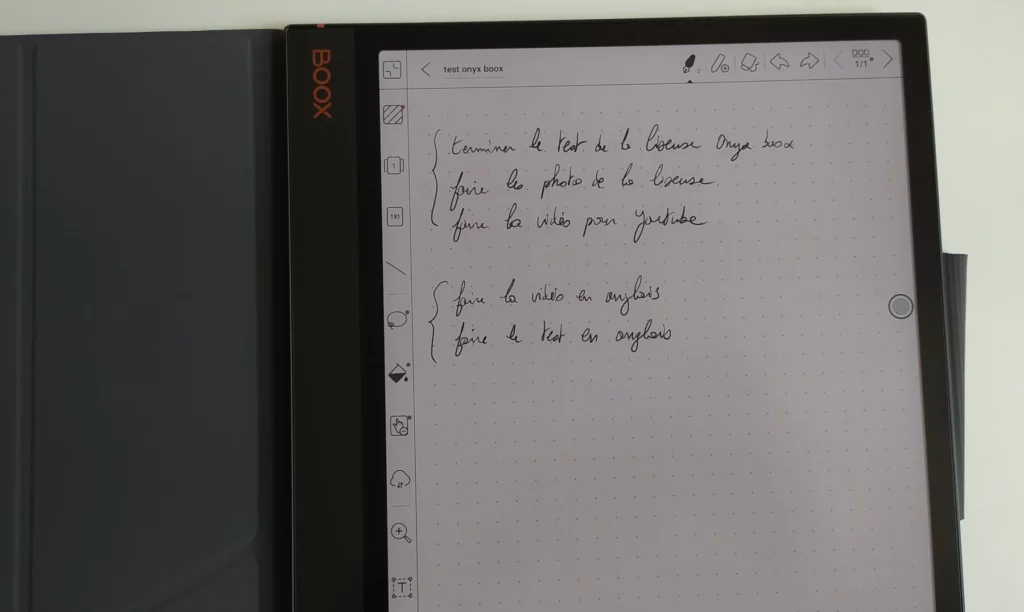 BOOX
test onyx boox
1/1
1
1X1
terminer le test de la liseuse Onyx boox
faire les photos de la liseuse.
faire la vidéo pour Youtube
faire la vidéo en anglais
faire le test en anglais
T